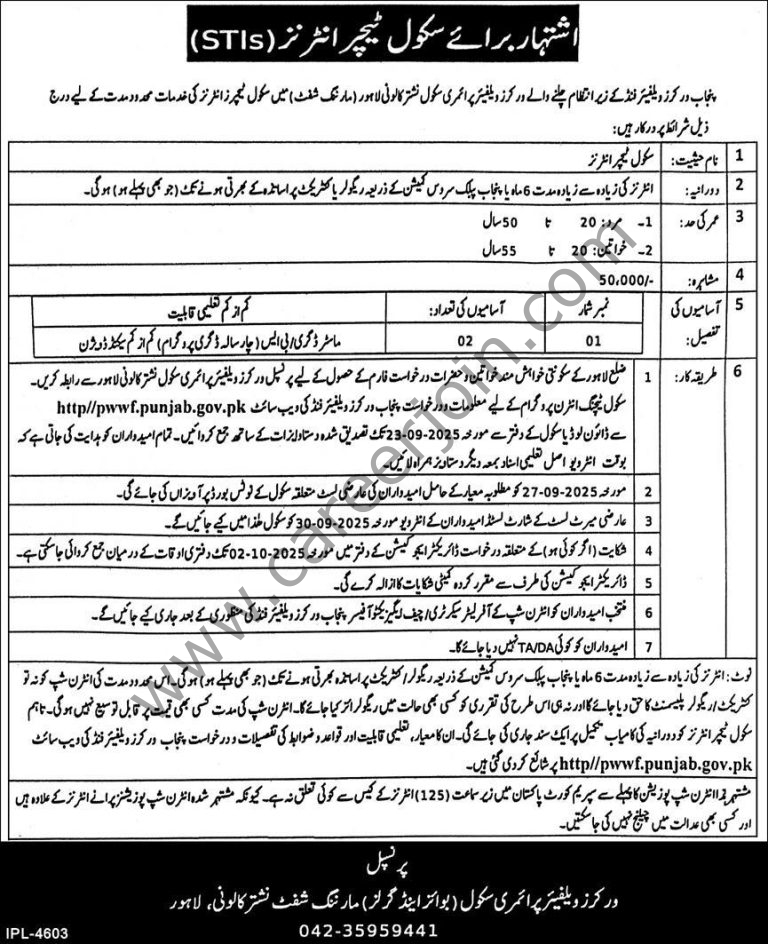 اشتہار برائے سکول ٹیچر انٹرنز (STIs)
پنجاب ورکرز ویلفیئر فنڈ کے زیر انتظام چلنے والے ورکرز ویلفیئر پرائمری سکول نشتر کالونی لاہور (مارننگ شفٹ) میں سکول ٹیچرز انٹرنز کی خدمات محدود مدت کے لیے درج
ذیل شرائط پر درکار ہیں:
1 نام حیثیت: سکول ٹیچر انٹرنز
2 دورانیہ: انٹرنز کی زیادہ سے زیادہ مدت 6 ماہ یا پنجاب پبلک سروس کمیشن کے ذریعہ ریگولر یا کنٹریکٹ پر اساتذہ کے بھرتی ہونے تک (جو بھی پہلے ہو) ہوگی۔
3 عمر کی حد: 1۔ مرد: 20 تا 50 سال
2۔ خواتین: 20 تا 55 سال
4 مشاہرہ: 50,000/-
5 آسامیوں کی نمبر شمار آسامیوں کی تعداد: کم از کم تعلیمی قابلیت
تفصیل: 01 02 ماسٹر ڈگری/بی ایس (چار سالہ ڈگری پروگرام) کم از کم سیکنڈ ڈویژن
6 طریقہ کار: 1 ضلع لاہور کے سکونتی خواہش مند خواتین و حضرات درخواست فارم کے حصول کے لیے پرنسپل ورکرز ویلفیئر پرائمری سکول نشتر کالونی لاہور سے رابطہ کریں۔
سکول ٹیچنگ انٹرن پروگرام کے لیے معلومات و درخواست پنجاب ورکرز ویلفیئر فنڈ کی ویب سائٹ http//pwwf.punjab.gov.pk
سے ڈاؤن لوڈ یا سکول کے دفتر سے مورخہ 23-09-2025 تک تصدیق شدہ دستاویزات کے ساتھ جمع کروائیں۔ تمام امیدواران کو ہدایت کی جاتی ہے کہ
بوقت انٹرویو اصل تعلیمی اسناد بمعہ دیگر دستاویز ہمراہ لائیں۔
2 مورخہ 27-09-2025 کو مطلوبہ معیار کے حامل امیدواران کی عارضی لسٹ متعلقہ سکول کے نوٹس بورڈ پر آویزاں کی جائے گی۔
3 عارضی میرٹ لسٹ کے شارٹ لسٹڈ امیدواران کے انٹرویو مورخہ 30-09-2025 کو سکول ھٰذا میں کیے جائیں گے۔
4 شکایت (اگر کوئی ہو) کے متعلقہ درخواست ڈائریکٹر ایجوکیشن کے دفتر میں مورخہ 02-10-2025 تک دفتری اوقات کے درمیان جمع کروائی جا سکتی ہے۔
5 ڈائریکٹر ایجوکیشن کی طرف سے مقرر کردہ کمیٹی شکایات کا ازالہ کرے گی۔
6 منتخب امیدواران کو انٹرن شپ کے آفر لیٹر سیکرٹری/چیف ایگزیکٹو آفیسر پنجاب ورکرز ویلفیئر فنڈ کی منظوری کے بعد جاری کیے جائیں گے۔
7 امیدواران کو کوئی TA/DA نہیں دیا جائے گا۔
نوٹ: انٹرنز کی زیادہ سے زیادہ مدت 6 ماہ یا پنجاب پبلک سروس کمیشن کے ذریعہ ریگولر/کنٹریکٹ پر اساتذہ بھرتی ہونے تک (جو بھی پہلے ہو) ہوگی۔ اس محدود مدت کی انٹرن شپ کو نہ تو
کنٹریکٹ/ریگولر پلیسمنٹ کا حق دیا جائے گا اور نہ ہی اس طرح کی تقرری کو کسی بھی حالت میں ریگولرائز کیا جائے گا۔ انٹرن شپ کی مدت کسی بھی قیمت پر قابل توسیع نہیں ہوگی۔ تاہم
سکول ٹیچر انٹرنز کو دورانیہ کی کامیاب تکمیل پر ایک سند جاری کی جائے گی۔ ان کا معیار، تعلیمی قابلیت اور قواعد و ضوابط کی تفصیلات و درخواست پنجاب ورکرز ویلفیئر فنڈ کی ویب سائٹ
http//pwwf.punjab.gov.pk پر شائع کر دی گئی ہیں۔
مشتہر ہذا انٹرن شپ پوزیشن کا پہلے سے سپریم کورٹ پاکستان میں زیر سماعت (125) انٹرنز کے کیس سے کوئی تعلق نہ ہے۔ کیونکہ مشتہر شدہ انٹرن شپ پوزیشنز پرانے انٹرنز کے علاوہ ہیں
اور کسی بھی عدالت میں چیلنج نہیں کی جا سکتیں۔
پرنسپل
ورکرز ویلفیئر پرائمری سکول (بوائز اینڈ گرلز) مارننگ شفٹ نشتر کالونی، لاہور
042-35959441
IPL-4603
www.careerjoin.com